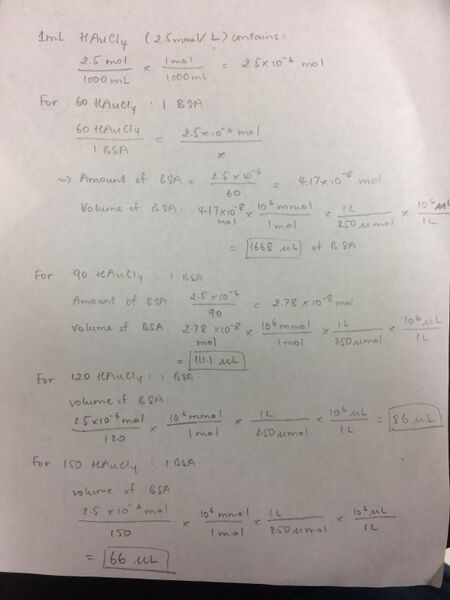 1mL HAuCl4 (2.5mmol/L) contains:
2.5 mol / 1000 mL × 1 mol / 1000 mL = 2.5×10^-6 mol
For 60 HAuCl4 : 1 BSA
60 HAuCl4 / 1 BSA = 2.5×10^-6 mol / x
→ Amount of BSA = 2.5×10^-6 / 60 = 4.17×10^-8 mol
Volume of BSA. 4.17×10^-8 mol × 10^6 mmol / 1 mol × 1L / 250 umol × 10^6 uL / 1L
= 166.8 uL of BSA.
For 90 HAuCl4 : 1 BSA
Amount of BSA. 2.5×10^-6 / 90 = 2.78×10^-8 mol
Volume of BSA. 2.78×10^-8 mol × 10^6 mmol / 1 mol × 1L / 250 umol × 10^6 uL / 1L
= 111.1 uL
For 120 HAuCl4 : 1 BSA
volume of BSA
2.5×10^-6 mol / 120 × 10^6 mmol / 1 mol × 1L / 250 umol × 10^6 uL / 1L = 83 uL
For 150 HAuCl4 : 1 BSA.
volume of BSA
2.5×10^-6 mol / 150 × 10^6 mmol / 1 mol × 1L / 250 umol × 10^6 uL / 1L
= 66 uL